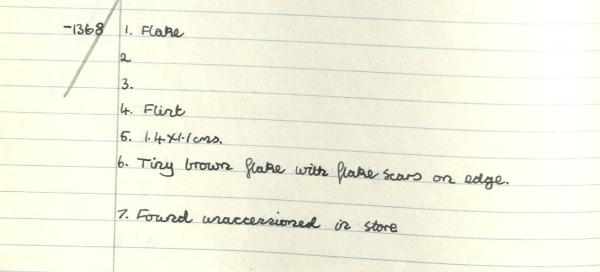 -1368 1. Flake
2
3.
4. Flint
5. 1.4x1.1cms.
6. Tiny brown flake with flake scars on edge.
7. Found unaccessioned in store